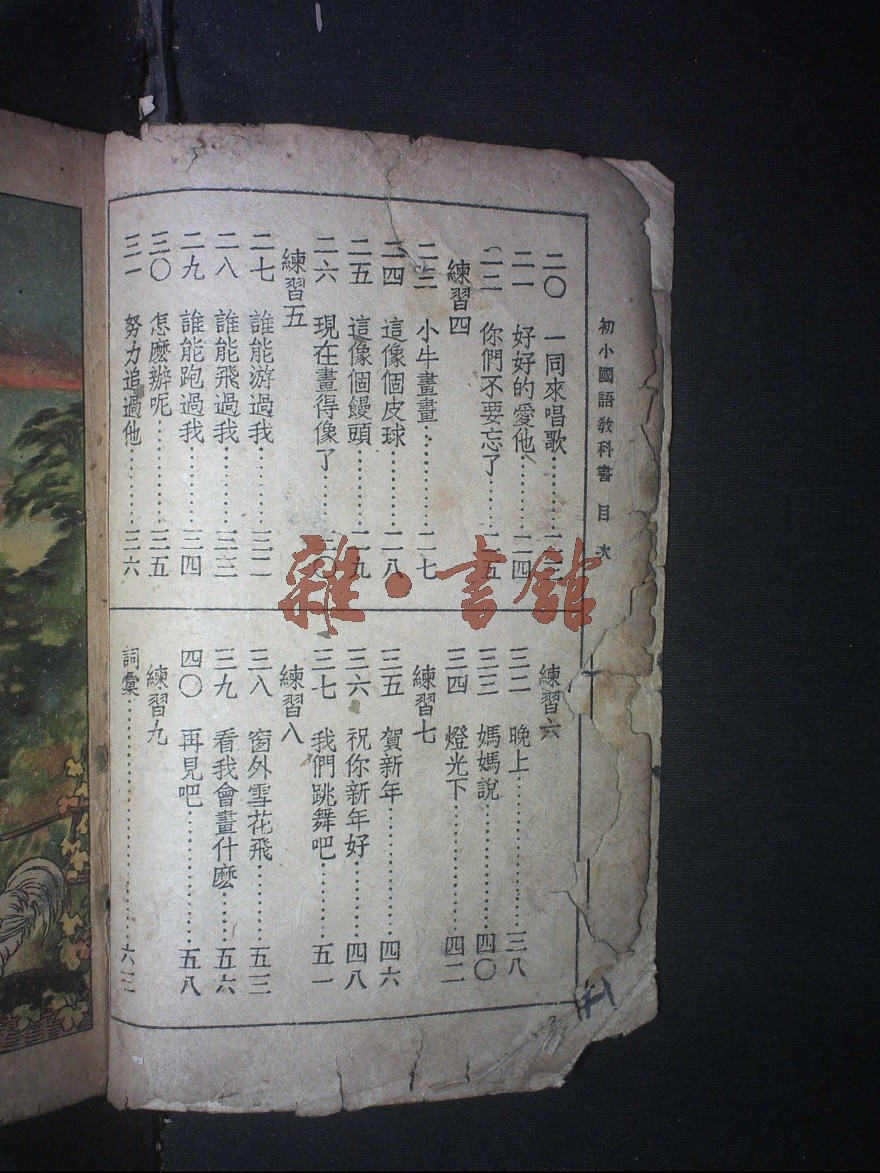 初小國語教科書 目次
二〇 一同來唱歌………
二一 好好的愛他………二四
二二 你們不要忘了………二五
練習四
二三 小牛畫畫………二七
二四 這像個皮球………二八
二五 這像個饅頭………二九
二六 現在畫得像了………三〇
練習五
二七 誰能游過我………三二
二八 誰能飛過我………三三
二九 誰能跑過我………三四
三〇 怎麽辦呢………三五
三一 努力追過他………三六
練習六
三二 晚上………三八
三三 媽媽說………四〇
三四 燈光下………四二
練習七
三五 賀新年………四六
三六 祝你新年好………四八
三七 我們跳舞吧………五一
練習八
三八 窗外雪花飛………五三
三九 看我會畫什麽………五六
四〇 再見吧………五八
練習九
詞彙………六三
雜·書館